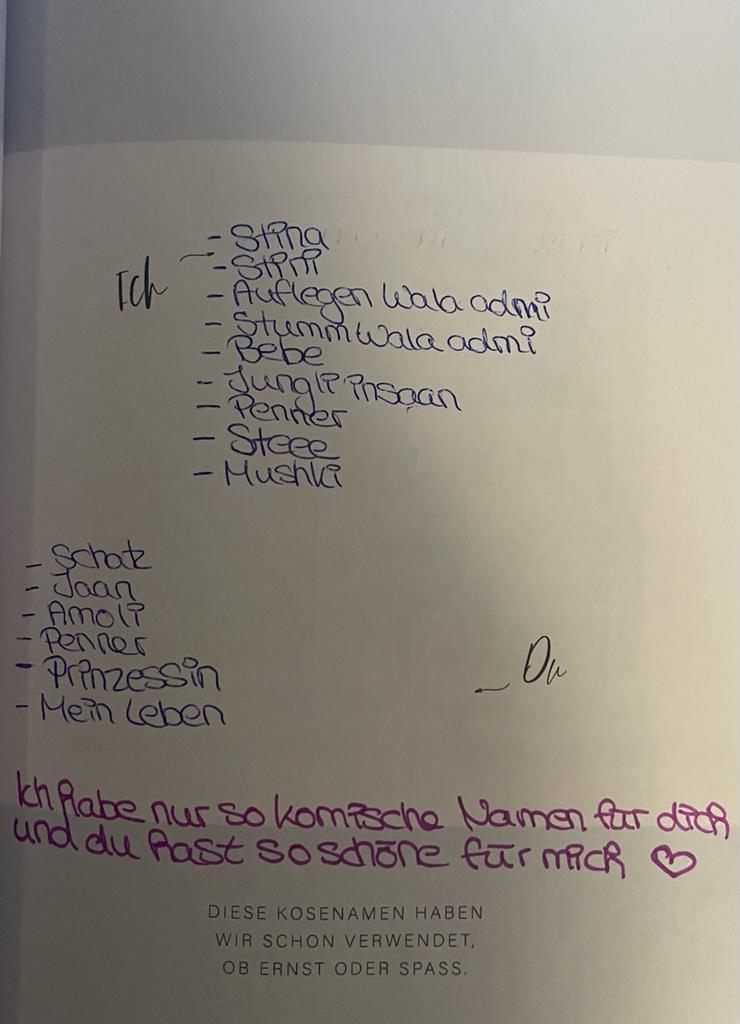 Ich
- Stina
- Stini
- Auflegen Wala admi
- Stumm Wala admi
- Bebe
- Jungli insaan
- Penner
- Steee
- Mushki
- Schatz
- Jaan
- Amoli
- Penner
- Prinzessin
- Mein Leben
Du
Ich habe nur so komische Namen für dich
und du hast so schöne für mich ♡
DIESE KOSENAMEN HABEN
WIR SCHON VERWENDET,
OB ERNST ODER SPASS.